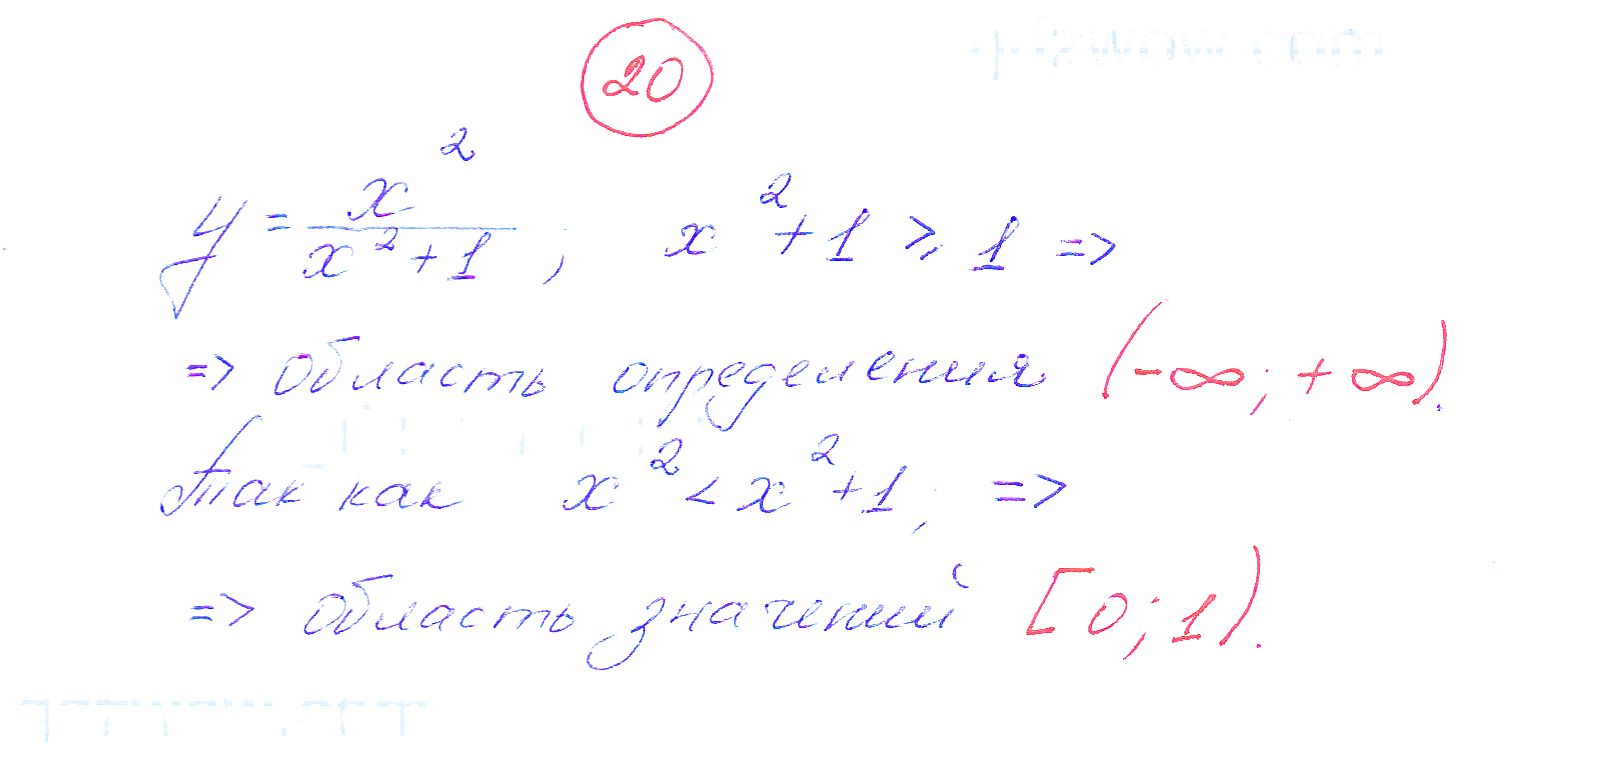 20
y = x²/(x²+1) ; x²+1 ⩾ 1 =>
=> область определения (-∞; +∞).
Так как x² < x²+1, =>
=> область значений [0; 1).